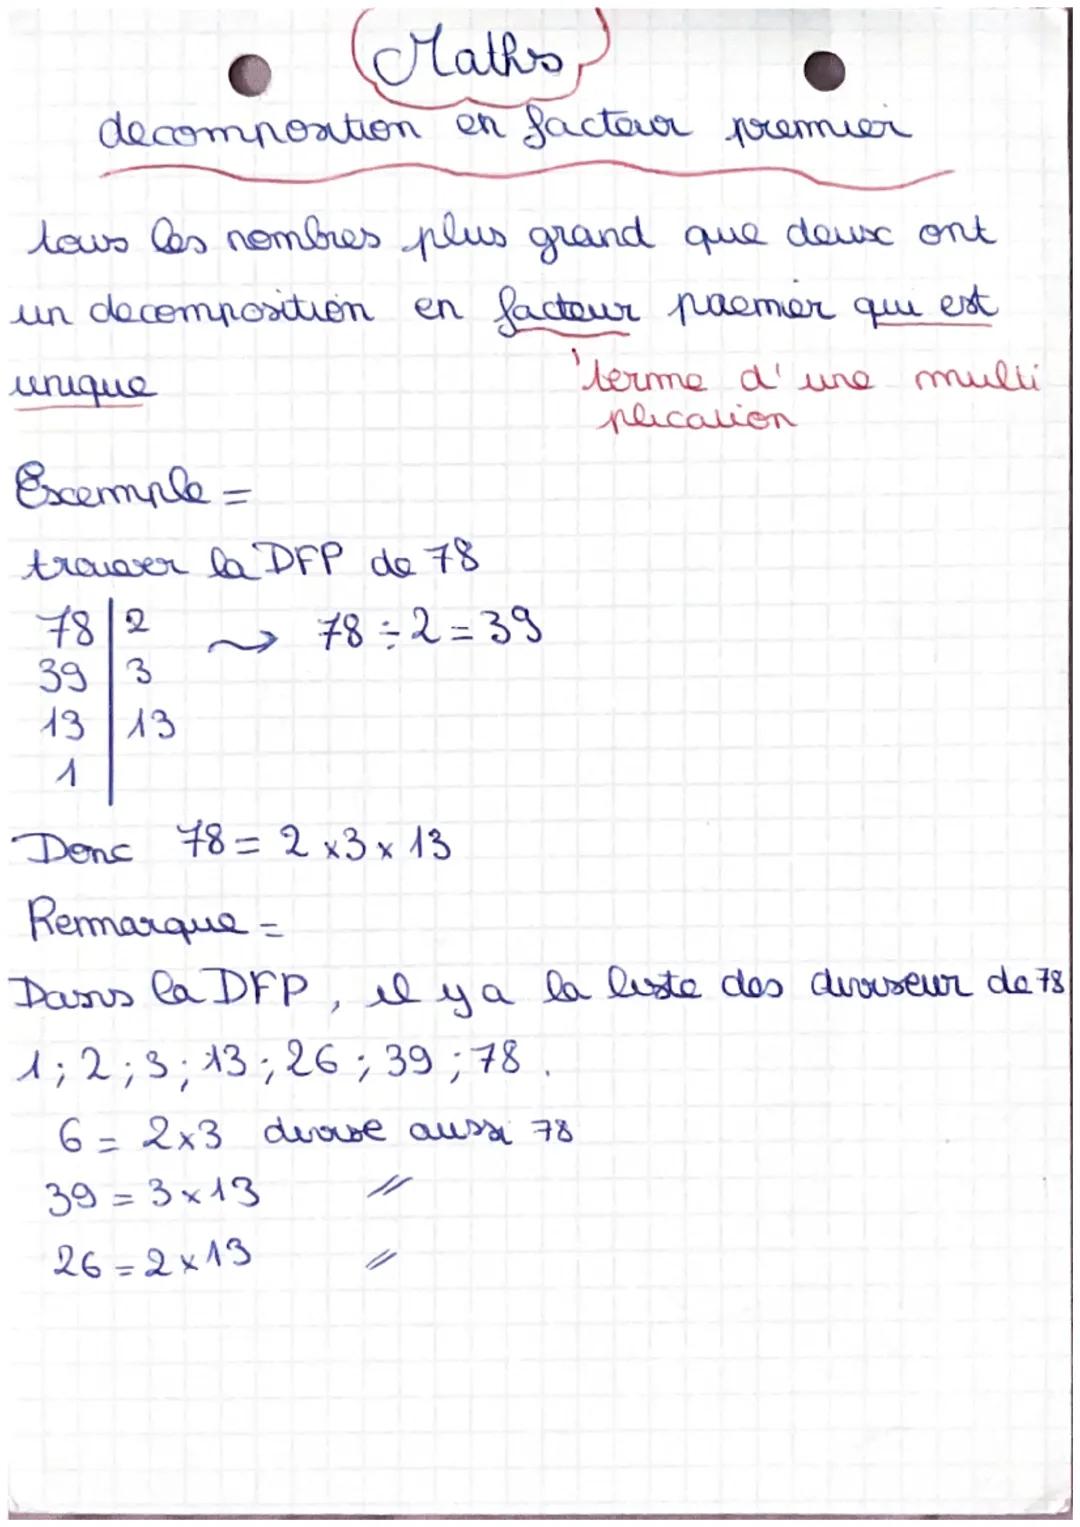 Maths
decomposition en facteur premier
tous les nombres plus grand que deux ont
un decomposition en facteur premier qui est
unique
terme d'une multi
plication
Exemple =
trouver la DFP de 78
78 | 2 ⤳ 78 ÷ 2 = 39
39 | 3
13 | 13
1 |
Donc 78 = 2 × 3 × 13
Remarque =
Dans la DFP, il y a la liste des diviseur de 78
1 ; 2 ; 3 ; 13 ; 26 ; 39 ; 78 .
6 = 2×3 divise aussi 78
39 = 3 × 13 //
26 = 2 × 13 //